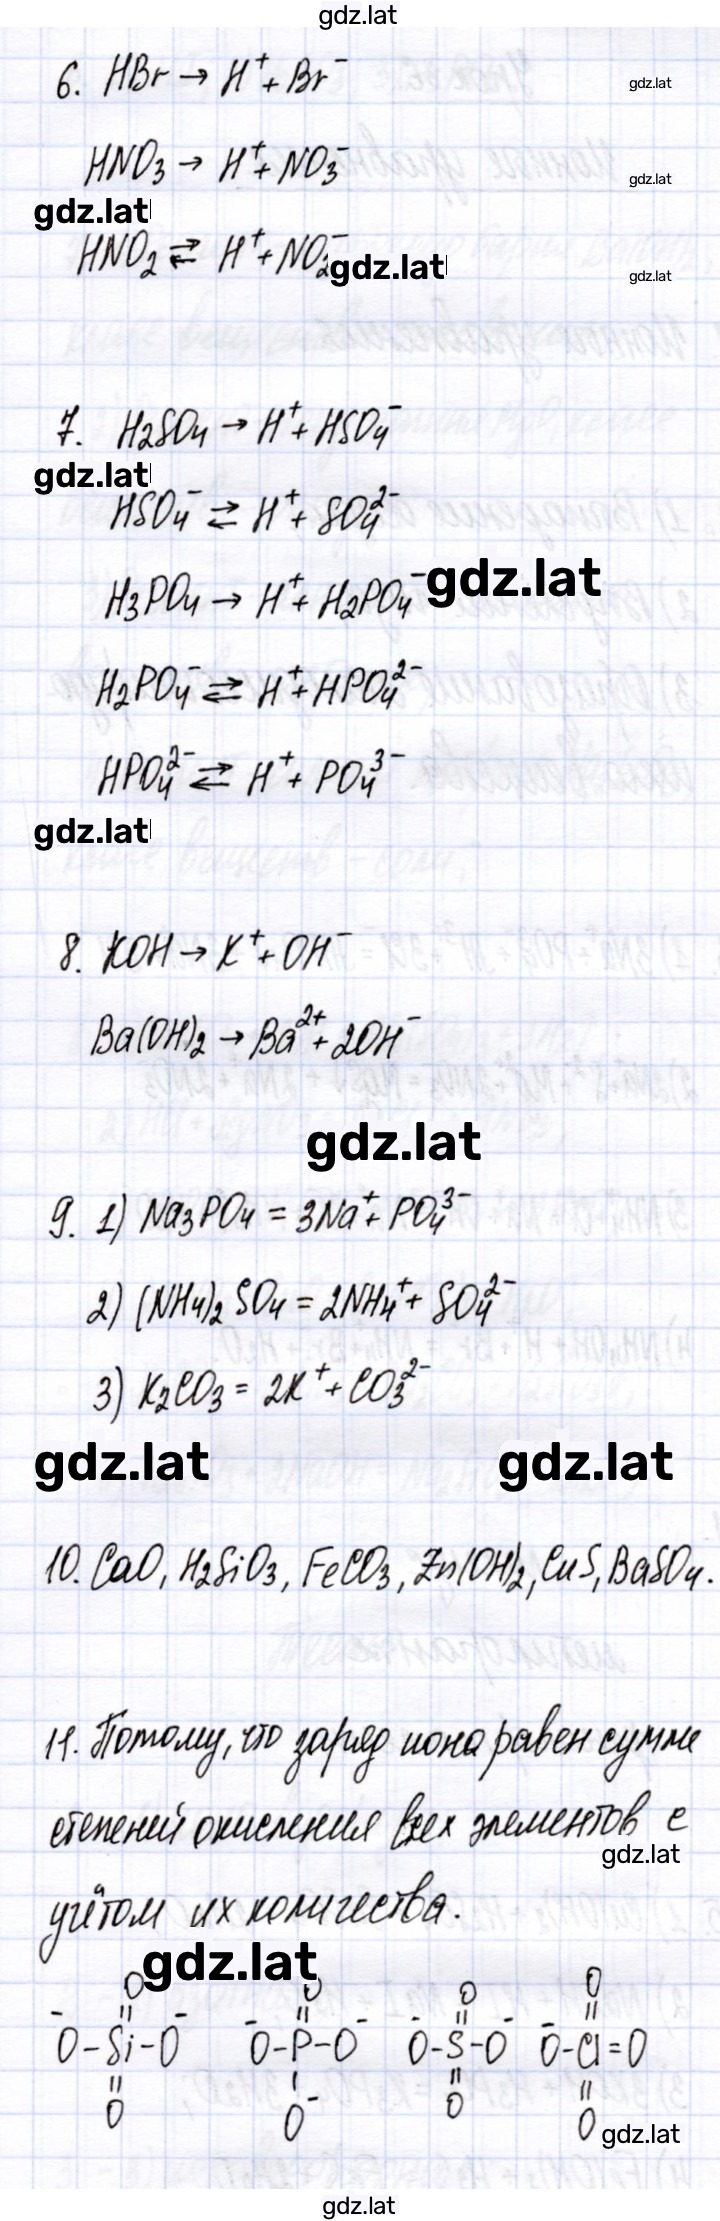 gdz.lat
6. HBr → H⁺ + Br⁻
gdz.lat
HNO₃ → H⁺ + NO₃⁻
gdz.lat
gdz.lat
HNO₂ ⇄ H⁺ + NO₂⁻
gdz.lat
gdz.lat
7. H₂SO₄ → H⁺ + HSO₄⁻
gdz.lat
HSO₄⁻ ⇄ H⁺ + SO₄²⁻
gdz.lat
H₃PO₄ → H⁺ + H₂PO₄⁻
H₂PO₄⁻ ⇄ H⁺ + HPO₄²⁻
HPO₄²⁻ ⇄ H⁺ + PO₄³⁻
gdz.lat
8. KOH → K⁺ + OH⁻
Ba(OH)₂ → Ba²⁺ + 2OH⁻
gdz.lat
9. 1) Na₃PO₄ = 3Na⁺ + PO₄³⁻
2) (NH₄)₂SO₄ = 2NH₄⁺ + SO₄²⁻
3) K₂CO₃ = 2K⁺ + CO₃²⁻
gdz.lat gdz.lat
10. CaO, H₂SiO₃, FeCO₃, Zn(OH)₂, CuS, BaSO₄.
11. Потому, что заряд иона равен сумме
степеней окисления всех элементов с
gdz.lat
учётом их количества.
gdz.lat
O O O O
⁻O-Si-O⁻ ⁻O-P-O⁻ ⁻O-S-O⁻ ⁻O-Cl=O
O O⁻ O O
gdz.lat
gdz.lat